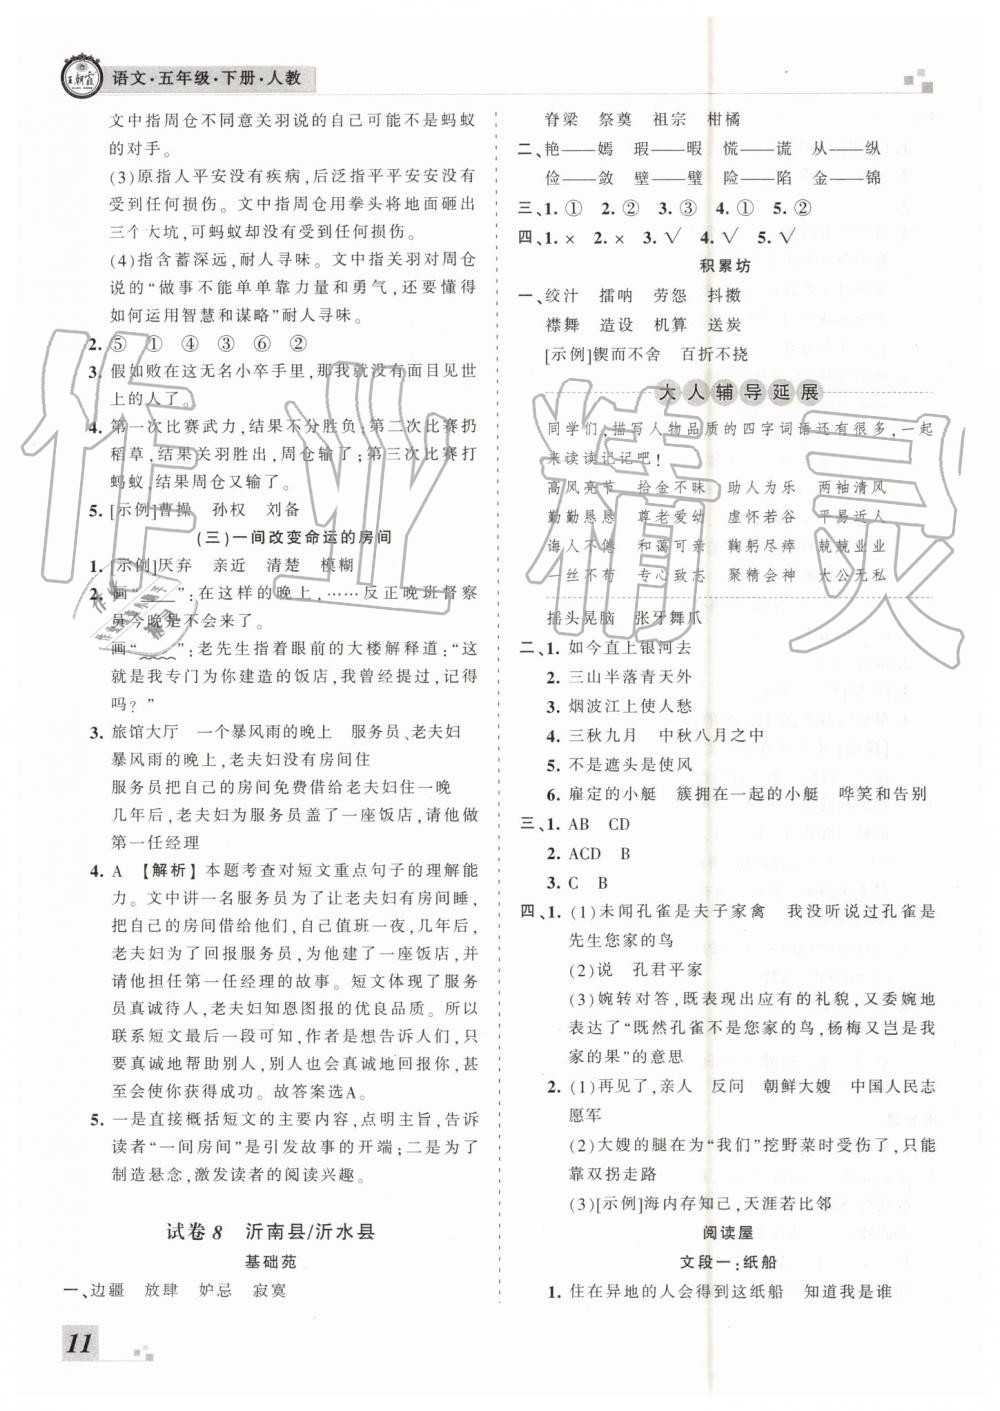 王朝霞
语文·五年级·下册·人教
文中指周仓不同意关羽说的自己可能不是蚂蚁
的对手。
(3)原指人平安没有疾病,后泛指平平安安没有
受到任何损伤。文中指周仓用拳头将地面砸出
三个大坑,可蚂蚁却没有受到任何损伤。
(4)指含蓄深远,耐人寻味。文中指关羽对周仓
说的“做事不能单单靠力量和勇气,还要懂得
如何运用智慧和谋略”耐人寻味。
2. ⑤ ① ④ ③ ⑥ ②
3. 假如败在这无名小卒手里,那我就没有面目见世
上的人了。
4. 第一次比赛武力,结果不分胜负;第二次比赛扔
稻草,结果关羽胜出,周仓输了;第三次比赛打
蚂蚁,结果周仓又输了。
5. [示例]曹操 孙权 刘备
(三)一间改变命运的房间
1. [示例]厌弃 亲近 清楚 模糊
2. 画“____”:在这的晚上,……反正晚班督察
员今晚是不会来了。
画“____”:老先生指着眼前的大楼解释道:“这
就是我专门为你建造的饭店,我曾经提过,记得
吗?”
3. 旅馆大厅 一个暴风雨的晚上 服务员、老夫妇
暴风雨的晚上,老夫妇没有房间住
服务员把自己的房间免费借给老夫妇住一晚
几年后,老夫妇为服务员盖了一座饭店,请他做
第一任经理
4. A 【解析】本题考查对短文重点句子的理解能
力。文中讲一名服务员为了让老夫妇有房间睡,
把自己的房间借给他们,自己值班一夜,几年后,
老夫妇为了回报服务员,为他建了一座饭店,并
请他担任第一任经理的故事。短文体现了服务
员真诚待人,老夫妇知恩图报的优良品质。所以
联系短文最后一段可知,作者是想告诉人们,只
要真诚地帮助别人,别人也会真诚地回报你,甚
至会使你获得成功。故答案选A。
5. 一是直接概括短文的主要内容,点明主旨,告诉
读者“一间房间”是引发故事的开端;二是为了
制造悬念,激发读者的阅读兴趣。
试卷8 沂南县/沂水县
基础苑
一、边疆 放肆 妒忌 寂寞
脊梁 祭奠 祖宗 柑橘
二、艳——嫣 瑕——暇 慌——谎 从——纵
俭——敛 壁——璧 险——陷 金——锦
三、1. ① 2. ② 3. ③ 4. ① 5. ②
四、1. × 2. × 3. √ 4. √ 5. √
积累坊
一、绞汁 擂呐 劳怨 抖擞
襟舞 造设 机算 送炭
[示例]锲而不舍 百折不挠
大人辅导延展
同学们,描写人物品质的四字词语还有很多,一起
来读读记记吧!
高风亮节 拾金不昧 助人为乐 两袖清风
勤勤恳恳 尊老爱幼 虚怀若谷 平易近人
诲人不倦 和蔼可亲 鞠躬尽瘁 兢兢业业
一丝不苟 专心致志 聚精会神 大公无私
摇头晃脑 张牙舞爪
二、1. 如今直上银河去
2. 三山半落青天外
3. 烟波江上使人愁
4. 三秋九月 中秋八月之中
5. 不是遮头是使风
6. 雇定的小艇 簇拥在一起的小艇 哗笑和告别
三、1. AB CD
2. ACD B
3. C B
四、1. (1)未闻孔雀是夫子家禽 我没听说过孔雀是
先生您家的鸟
(2)说 孔君平家
(3)婉转对答,既表现出应有的礼貌,又委婉地
表达了“既然孔雀不是您家的鸟,杨梅又岂是我
家的果”的意思
2. (1)再见了,亲人 反问 朝鲜大嫂 中国人民志
愿军
(2)大嫂的腿在为“我们”挖野菜时受伤了,只能
靠双拐走路
(3)[示例]海内存知己,天涯若比邻
阅读屋
文段一:纸船
1. 住在异地的人会得到这纸船 知道我是谁
11
作业精灵